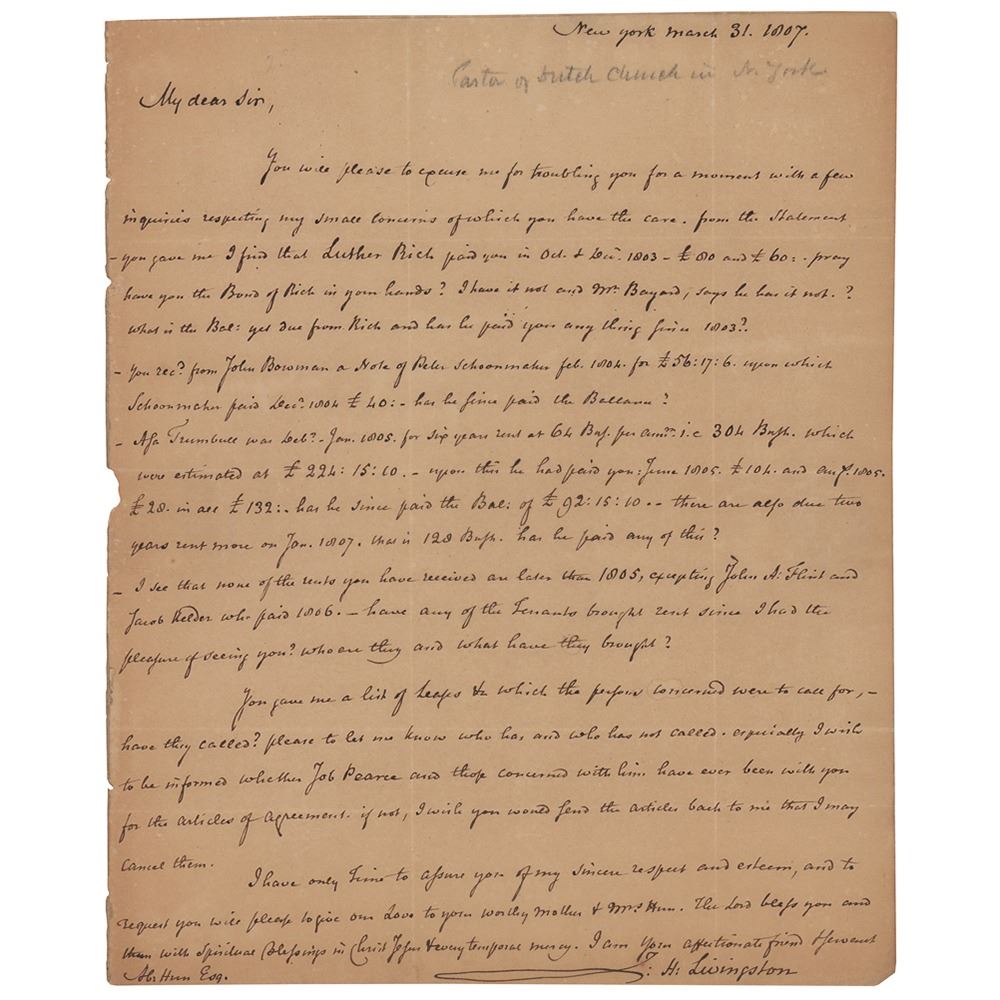 New york march 31. 1807.
Pastor of Dutch Church in N. York
My dear Sir,
You will please to excuse me for troubling you for a moment with a few
inquiries respecting my small concerns of which you have the care. from the Statement
- you gave me I find that Luther Rich paid you in Oct. & Dec. 1803 - £80 and £60: - pray
have you the Bond of Rich in your hands? I have it not and Mr. Bayard, says he has it not. ?
what is the Bal: yet due from Rich and has he paid you any thing since 1803?
- You rec.d from John Bowman a Note of Peter Schoonmaker feb. 1804. for £56:17:6. upon which
Schoonmaker paid Dec.r 1804 £40: - has he since paid the Ballance ?
- Asa Trumbull was Deb.r - Jan. 1805. for six years rent at 64 Bus. per ann.m i.e 304 Bush. which
were estimated at £224:15:10. - upon this he had paid you: June 1805. £104. and aug.t 1805.
£28. in all £132: - has he since paid the Bal: of £92:15:10 - - there are also due two
years rent more on Jan. 1807. that is 128 Bush. has he paid any of this ?
- I see that none of the rents you have received are later than 1805, excepting John A: Flint and
Jacob Helder who paid 1806. - have any of the Tenants brought rent since I had the
pleasure of seeing you? who are they and what have they brought ?
You gave me a list of Leases &c which the persons concerned were to call for, -
have they called? please to let me know who has and who has not called. especially I wish
to be informed whether Job Pearce and those concerned with him have ever been with you
for the articles of Agreement. if not, I wish you would send the articles back to me that I may
cancel them.
I have only time to assure you of my sincere respect and esteem, and to
request you will please to give our Love to your worthy Mother & Mrs Hun. The Lord bless you and
them with Spiritual Blessings in Christ Jesus & every temporal mercy. I am your affectionate friend & servant
Ab: Hun Esq. J: H: Livingston